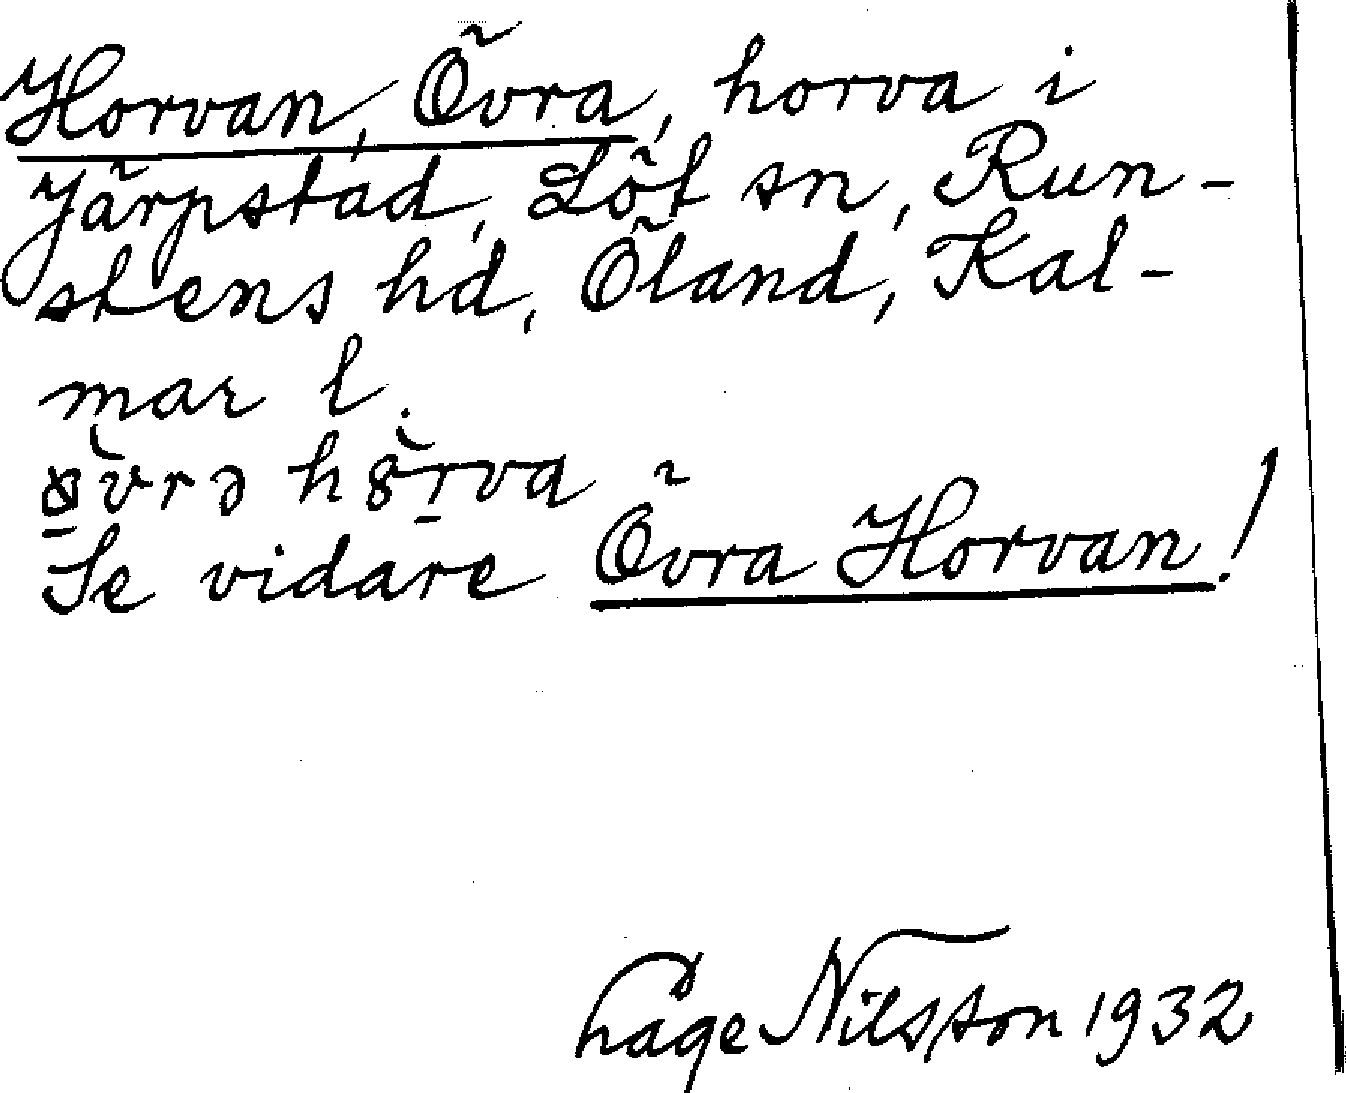 Horvan, Övra, horva i
Järpstad, Löt sn, Run-
stens hd, Öland, Kal-
mar l.
Se vidare Övra Horvan!
Håge Nilsson 1932